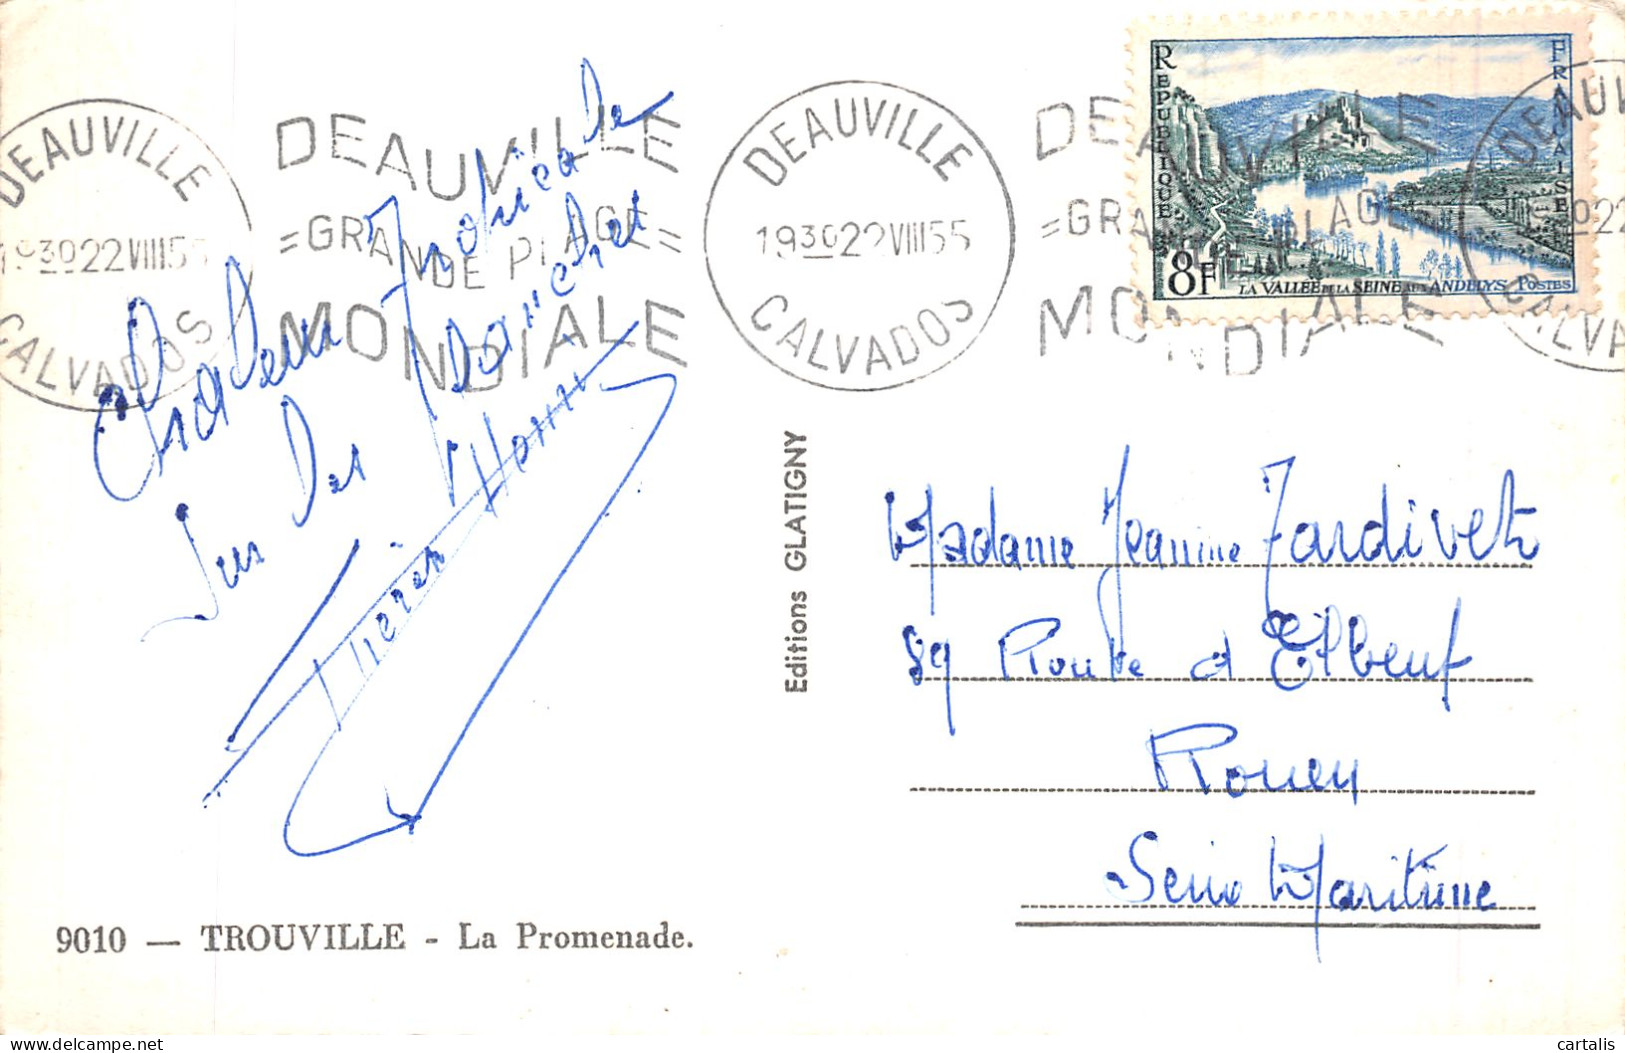 DEAUVILLE
1930 22 VIII 55
CALVADOS
DEAUVILLE
=GRANDE PLAGE=
MONDIALE
DEAUVILLE
1930 22 VIII 55
CALVADOS
DEAUVILLE
=GRANDE PLAGE
MONDIALE
DEAUV
022
CALVA
REPUBLIQUE FRANÇAISE
8F
LA VALLÉE DE LA SEINE AUX ANDELYS POSTES
Chaleur Tropicale
sur Les
Thérèse
Editions GLATIGNY
Madame Jeanine Tardivel
89 Route d Elbeuf
Rouen
Seine Maritime
9010 — TROUVILLE - La Promenade.
cartalis